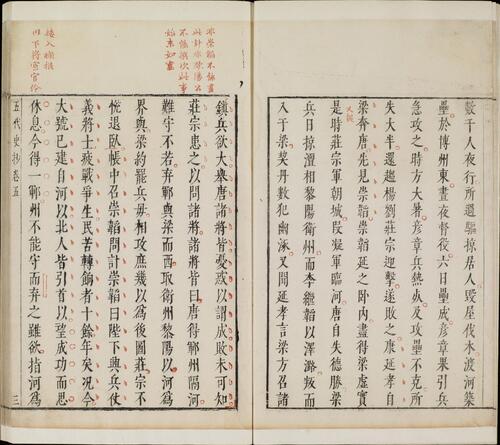 數千人夜行所過驅掠居人毀屋伐木渡河築
壘於博州東晝夜督役六日壘成彥章果引兵
急攻之時方大暑彥章兵熱死及攻壘不克所
失大半還趨楊劉莊宗迎擊遂敗之康延孝自
梁奔唐先見崇韜崇韜延之卧內盡得梁虛實
是時莊宗軍朝城段凝軍臨河唐自失德勝梁
兵日掠澶相黎陽衛州而李繼韜以澤潞叛而
入于梁契丹數犯幽涿又聞延孝言梁方召諸
鎮兵欲大舉唐諸將皆憂惑以謂成敗未可知
莊宗患之以問諸將諸將皆曰唐得鄆州隔河
難守不若棄鄆與梁而西取衛州黎陽以河爲
界與梁約罷兵毋相攻庶幾以爲後圖莊宗不
恱退卧帳中召崇韜問計崇韜曰陛下興兵仗
義將士疲戰爭生民苦轉餉者十餘年矣况今
大號已建自河以北人皆引首以望成功而思
休息今得一鄆州不能守而棄之雖欲指河爲
五代史抄卷五 三